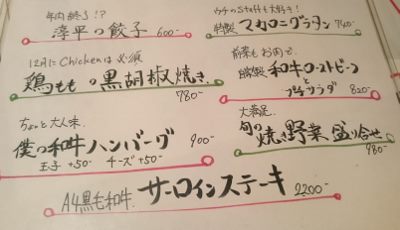 年内終了!?
淳平の餃子 600-
12月にChickenは必須
鶏ももの黒胡椒焼き
780-
ちょっと大人味
僕の和牛ハンバーグ 900-
玉子 +50- チーズ +50-
ウチのStaffも大好き!
特製 マカロニグラタン 740-
前菜もお肉で
自家製 和牛ローストビーフ
と
プチサラダ 820-
大満足
旬の焼き野菜盛り合せ
980-
A4黒毛和牛 サーロインステーキ 2200-